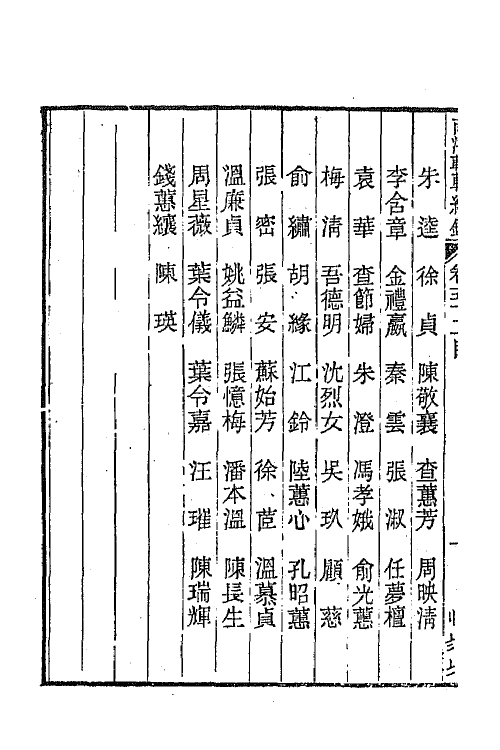 朱逵　徐貞　陳敬襄　查蕙芳　周映淸
李含章　金禮嬴　秦雲　張淑　任夢檀
袁華　查節婦　朱澄　馮孝娥　俞光蕙
梅淸　吾德明　沈烈女　吴玖　顧慈
俞繡　胡緣　江鈴　陸蕙心　孔昭蕙
張密　張安　蘇始芳　徐苣　溫慕貞
溫廉貞　姚益鱗　張憶梅　潘本溫　陳長生
周星薇　葉令儀　葉令嘉　汪璀　陳瑞輝
錢蕙纕　陳瑛